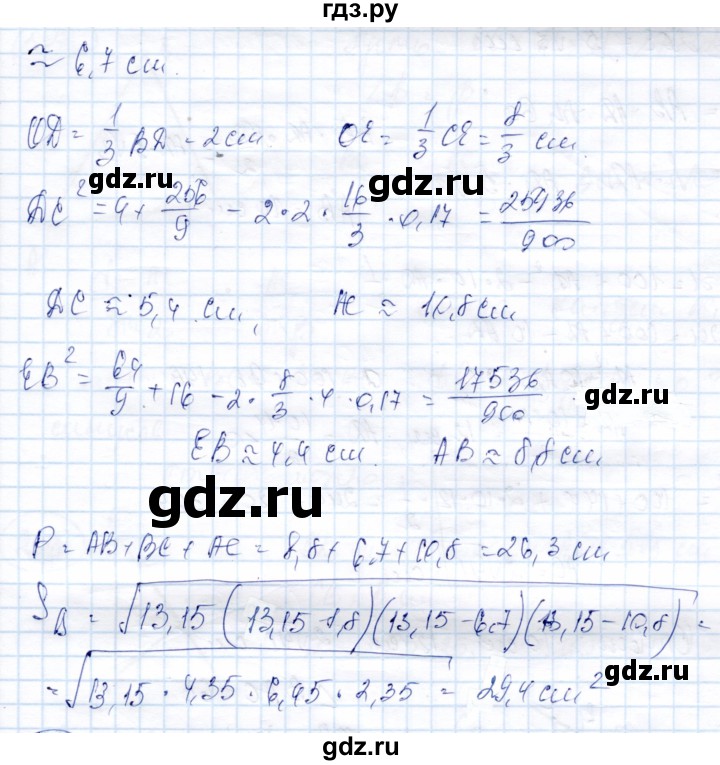 гдз.ру
≈ 6,7 cm.
OD = 1/3 BD = 2 cm. OE = 1/3 CE = 8/3 cm.
DC² = 4 + 256/9 - 2·2·16/3·0,17 = 25936/900
DC ≈ 5,4 cm, AC ≈ 10,8 cm
EB² = 64/9 + 16 - 2·8/3·4·0,17 = 17536/900
gdz.ru
EB ≈ 4,4 cm. AB ≈ 8,8 cm
gdz.ru
P = AB + BC + AC = 8,8 + 6,7 + 10,8 = 26,3 cm
S_Δ = √13,15 (13,15 - 8,8)(13,15 - 6,7)(13,15 - 10,8) =
= √13,15 · 4,35 · 6,45 · 2,35 = 29,4 cm²
gdz.ru
gdz.ru